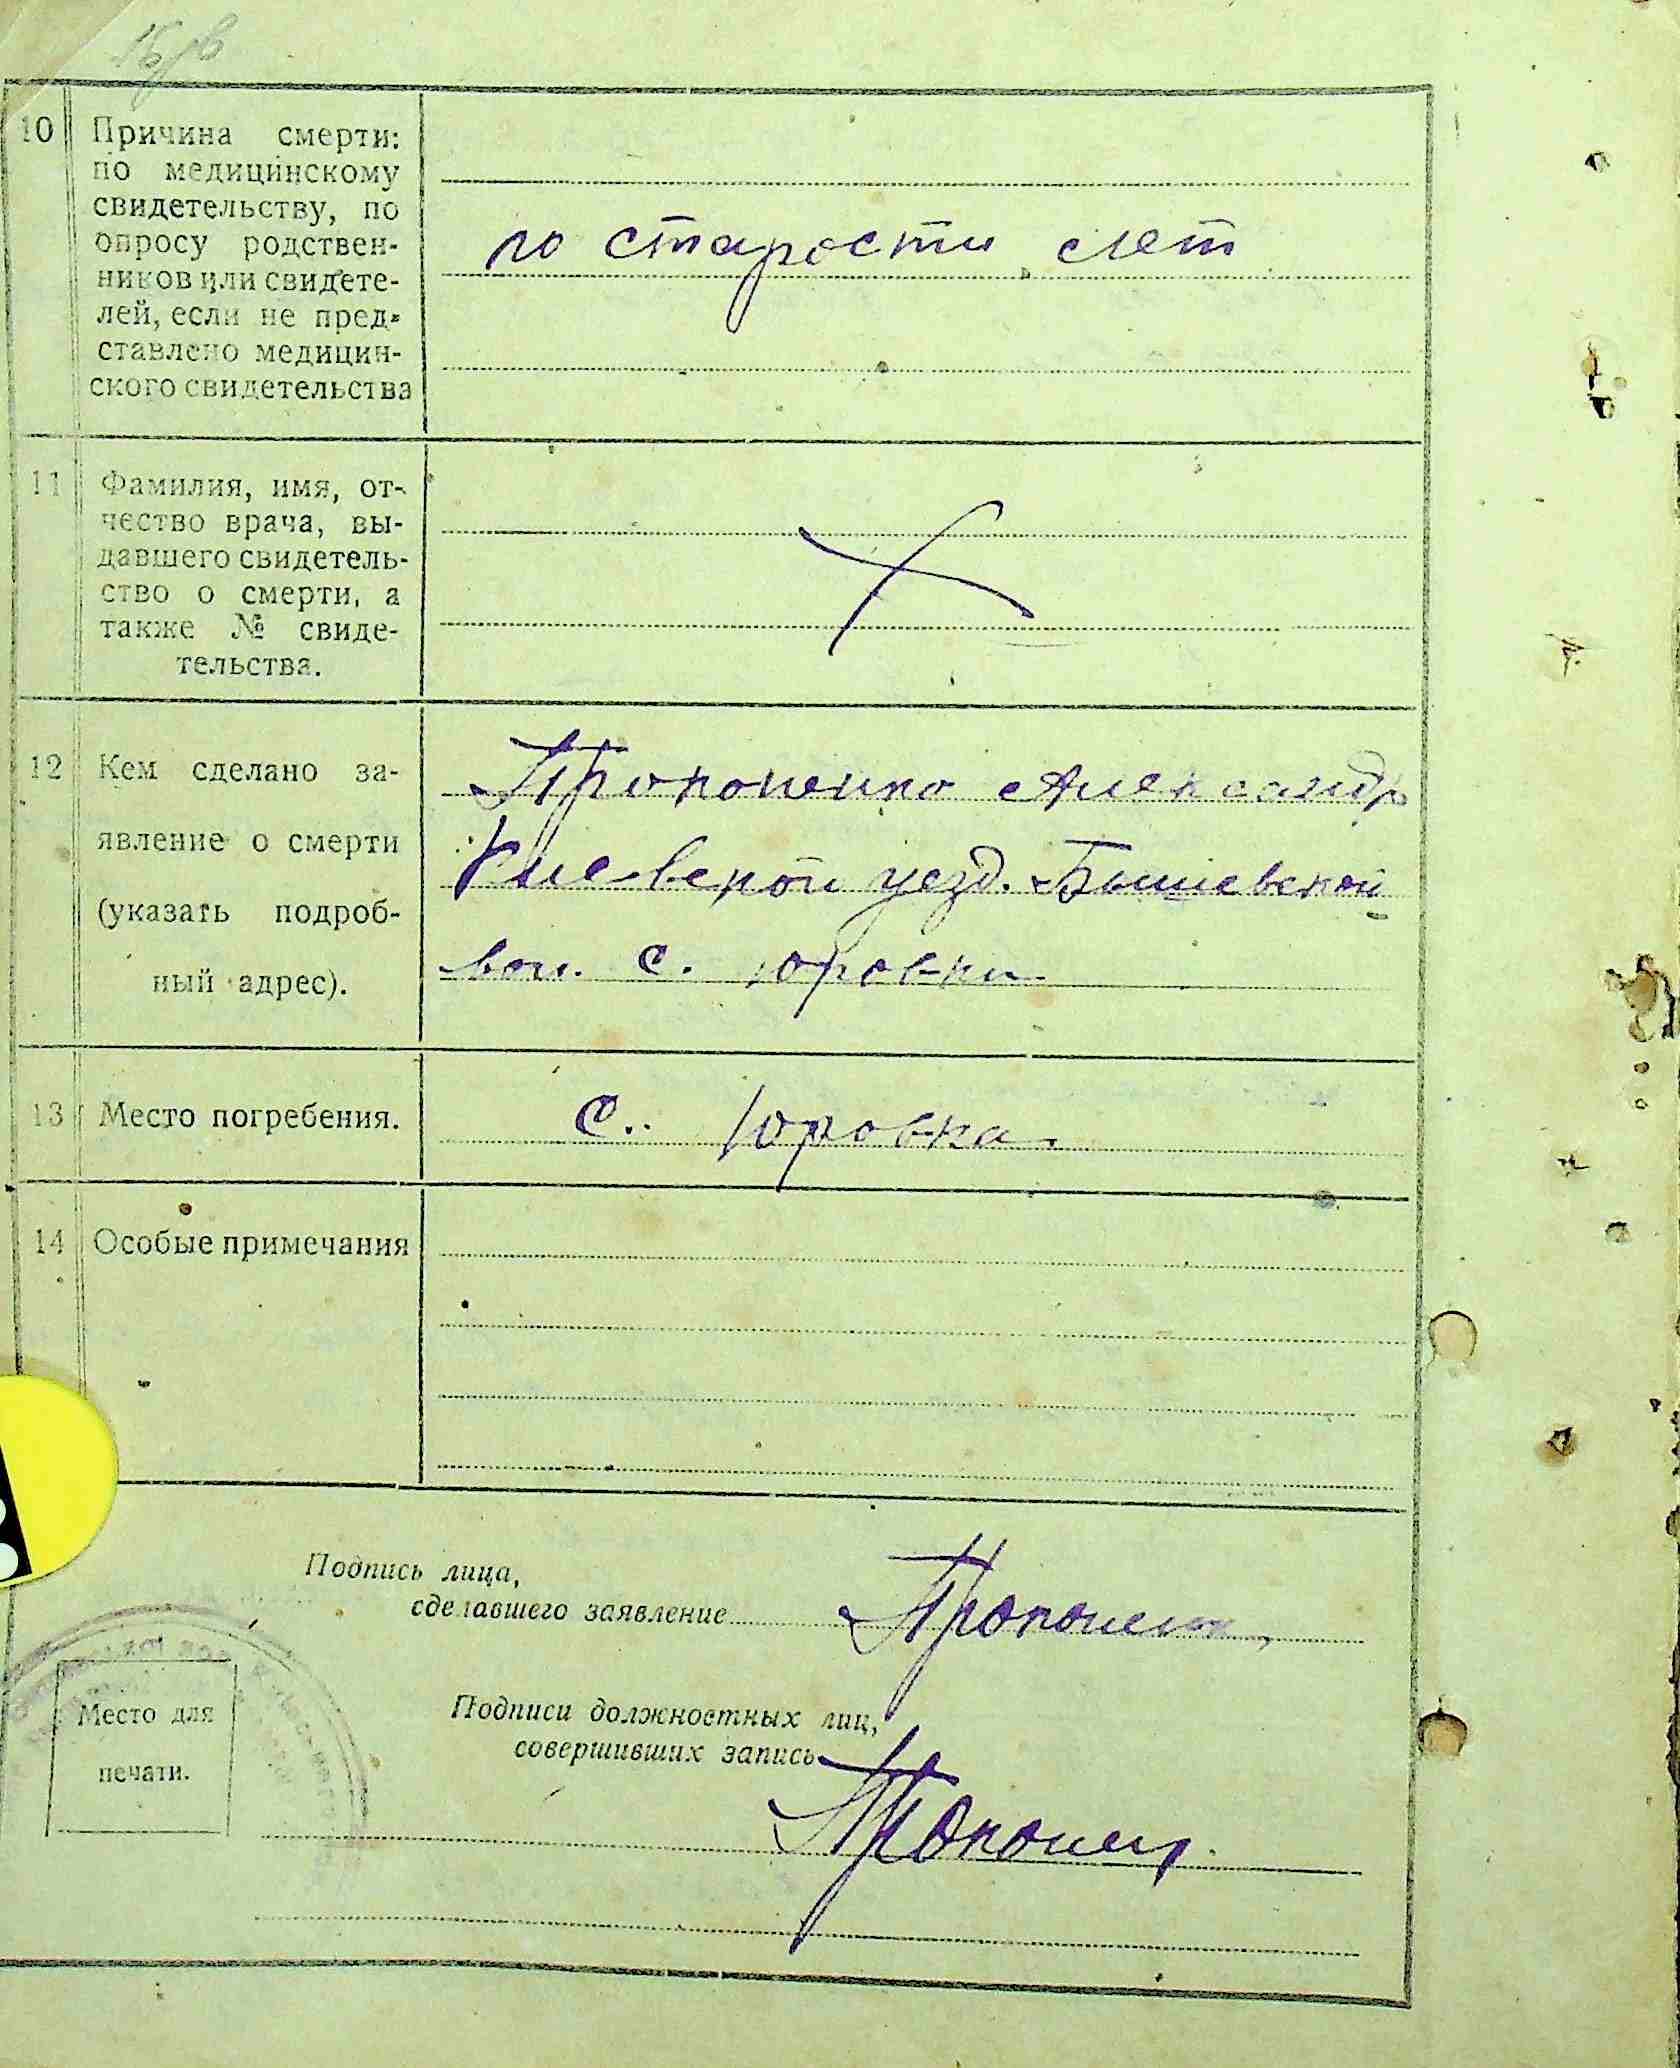 10 Причина смерти:
по медицинскому
свидетельству, по
опросу родствен-
ников или свидете-
лей, если не пред-
ставлено медицин-
ского свидетельства
по старости лет
11 Фамилия, имя, от-
чество врача, вы-
давшего свидетель-
ство о смерти, а
также № свиде-
тельства.
12 Кем сделано за-
явление о смерти
(указать подроб-
ный адрес).
Прокопенко Александр
Киевской уезд. Бышевской
вол. с. Юровки
13 Место погребения.
с. Юровка.
14 Особые примечания
Подпись лица,
сделавшего заявление
Прокопенк
Подписи должностных лиц,
совершивших запись
Место для
печати.